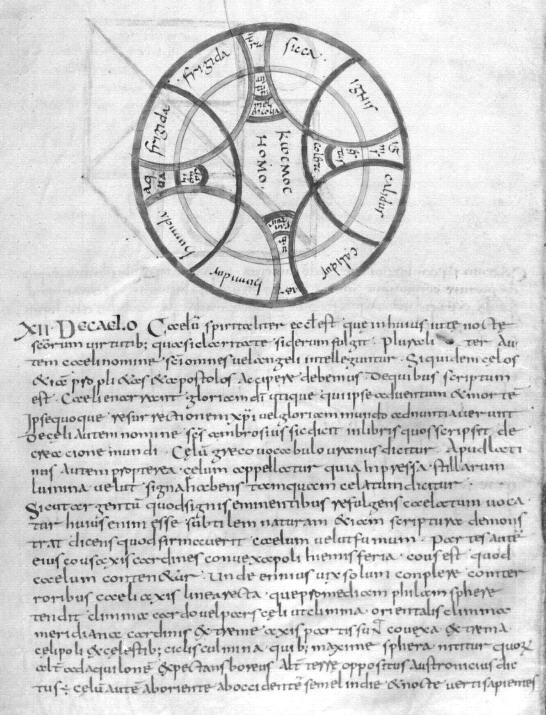 frigida
sicca
ignis
frigida
calidus
aqua
ignis
colera
KOCMOC
HOMO
humida
humidus
calidus
aer
XII · DE CAELO Coelū spiritaliter eccl est que in huius uite nocte
scōrum uirtutib; quasi claritate siderum fulgit · Pluraliter au
tem coeli nomine sci omnes uel angeli intelleguntur · Siquidem celos
& iā pro pli & os & apostolos accipere debemus De quibus scriptum
est · Coeli enarrant gloriam dī utique qui ipse aduentum & morte
Ipse quoque resurrectionem xpi uel gloriam mundo adnuntiauerunt
De celi autem nomine scs ambrosius sic dicit in libris quos scripsit de
creacione mundi · Celū greco uocabulo uranus dicitur · Apud lati
nos autem propterea celum appellatur quia inpressa stellarum
lumina uelut signa habens tamquam celatum dicitur ·
Sicut argentū quod signis eminentibus refulgens caelatum uoca
tur huius enim esse subtilem naturam & iam scriptura demons
trat dicens quod firmauerit coelum uelut fumum · Partes autē
eius cous axis cardines conuexa poli hiemisferia · cous est quod
coelum contin&ur · Unde ennius uix solum conplere
roribus coeli axis linea recta que per mediam pilam sphere
tendit clima cardo uel pars celi ut clima orientalis clima
meridiana cardinis &treme axis partis sunt couexa &trema
celi poli & celestib; ciclis culmina quib; maxime sphera nititur quorū
alt ad aquilonē &pectans boreus Alt terre oppositus austronicus dic
tus ÷ Celū autē ab oriente ab occidente semel in die & nocte uerti sapientes